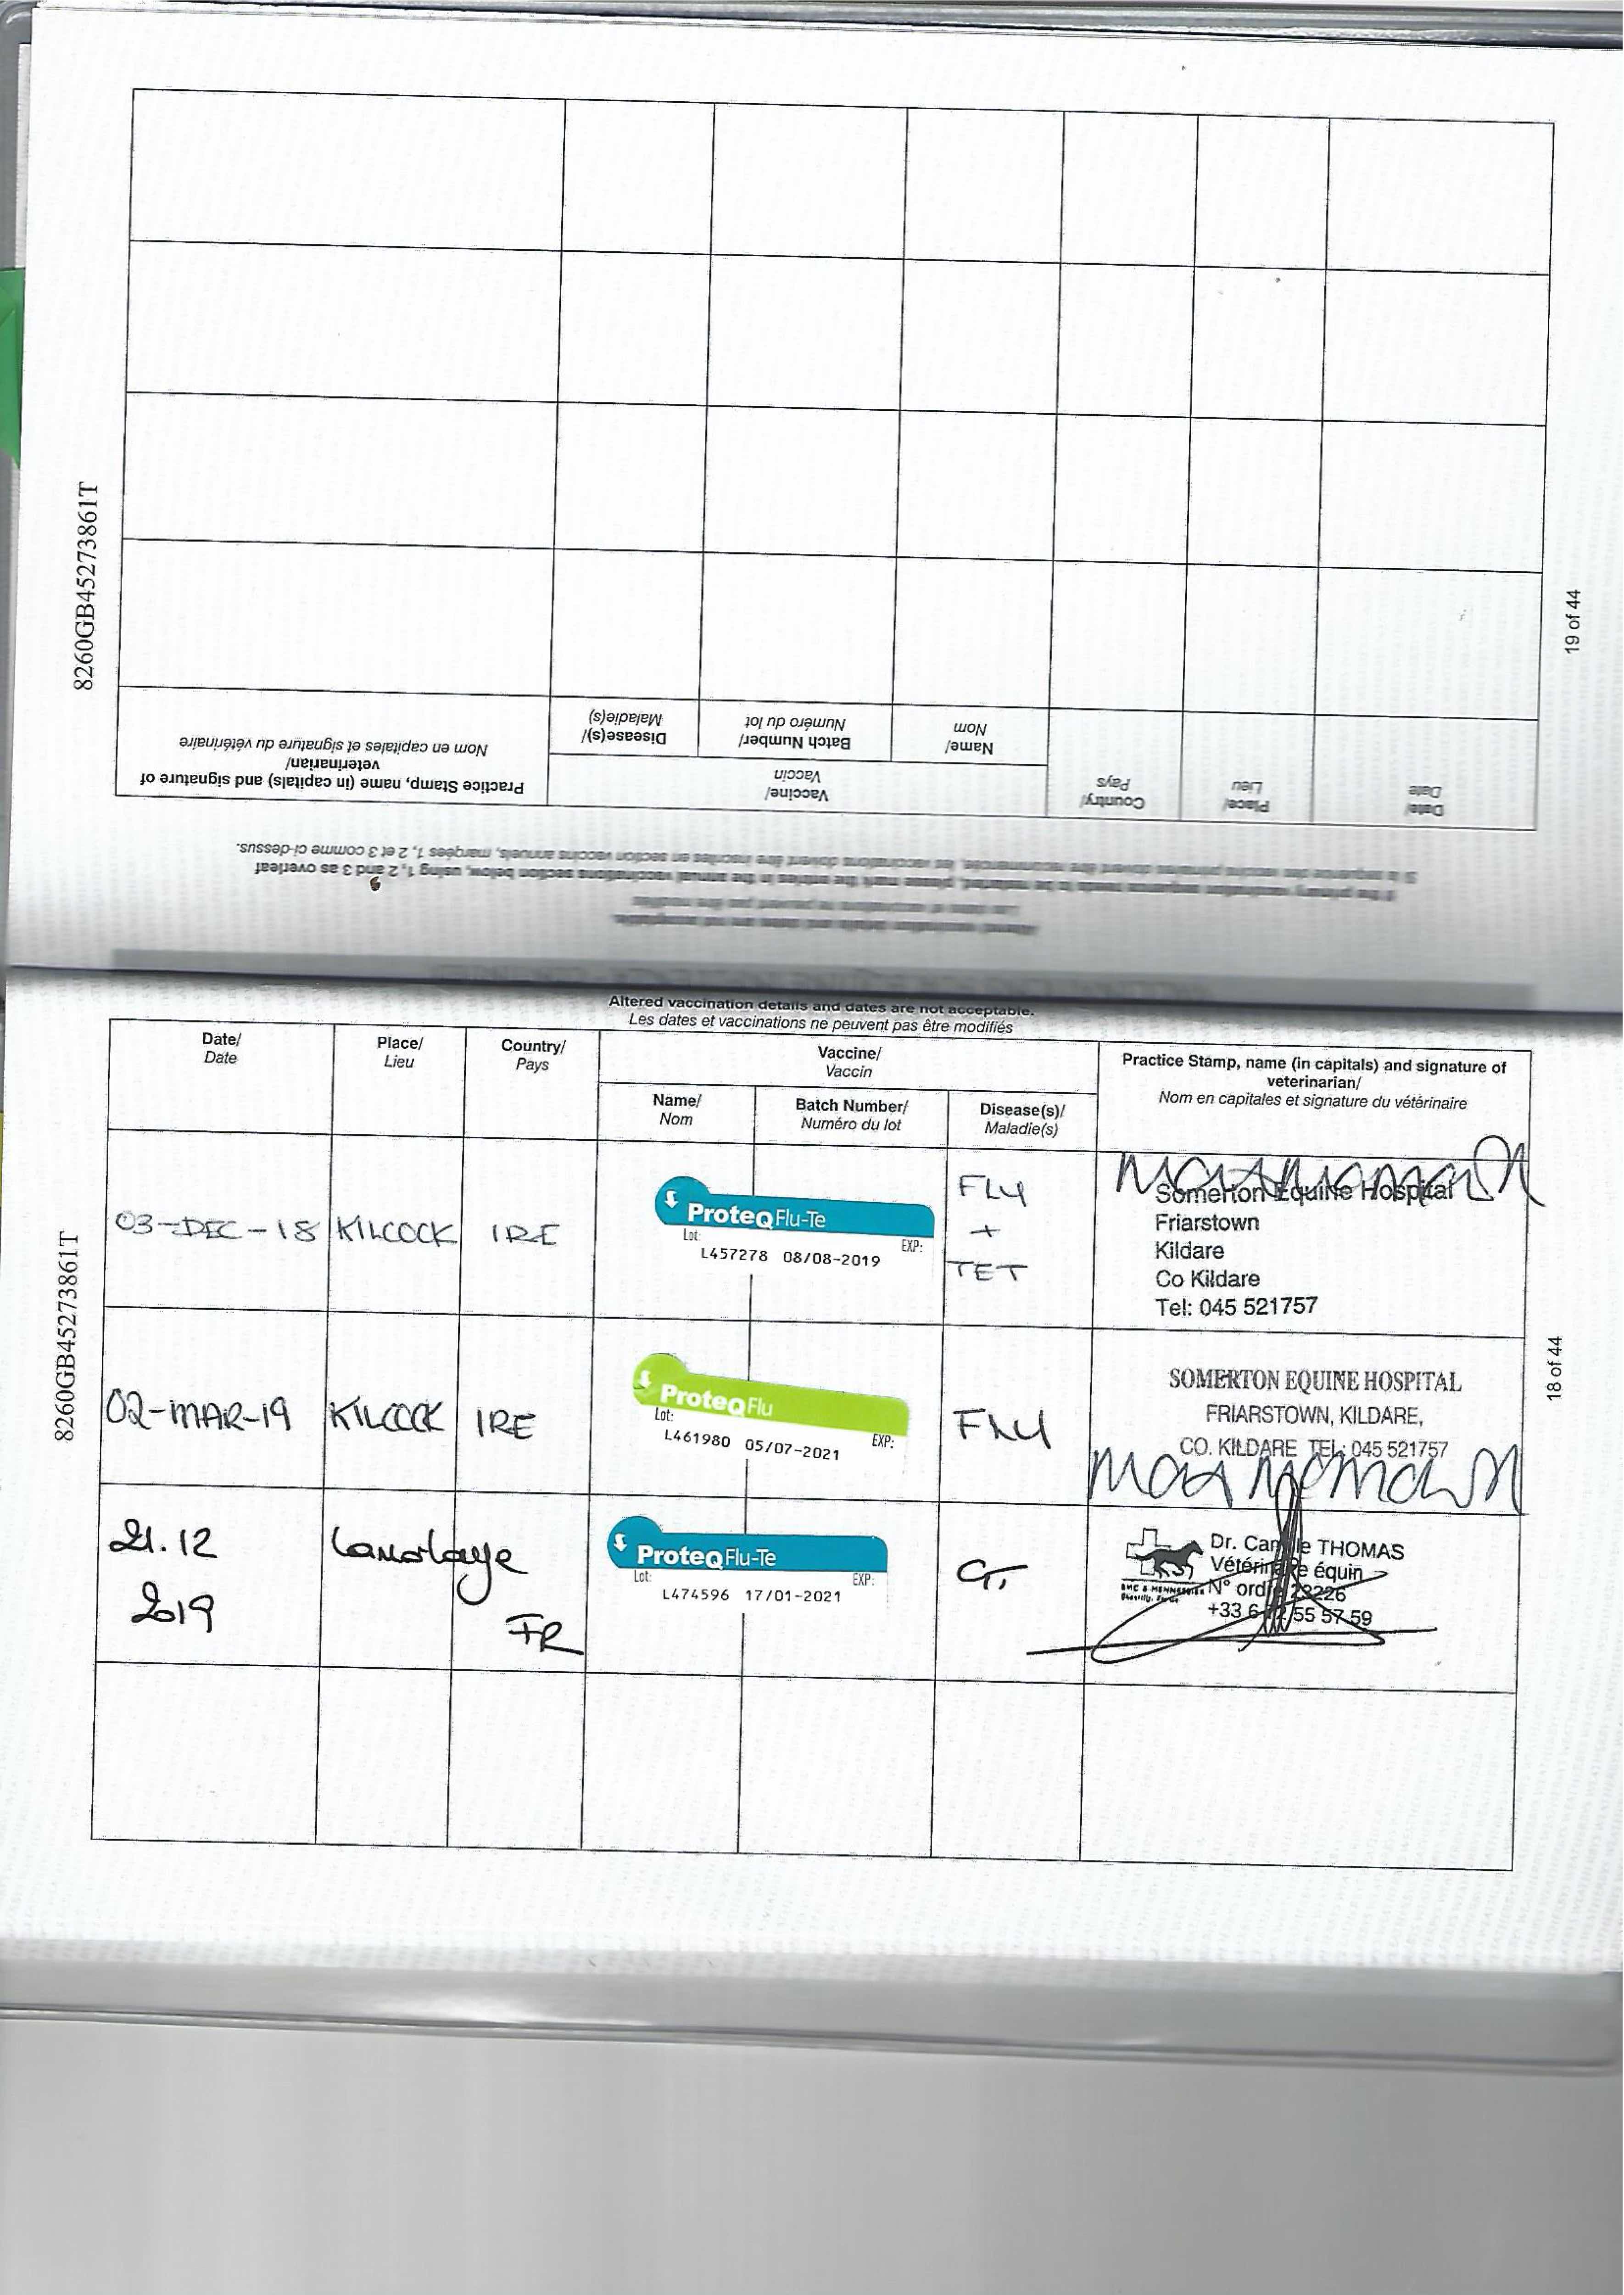 8260GB45273861T
19 of 44
Altered vaccination details and dates are not acceptable.
Les dates et vaccinations ne peuvent pas être modifiés
If the primary vaccination sequence needs to be restarted, please mark the entries in the annual vaccinations section below, using 1, 2 and 3 as overleaf
Si la séquence des vaccins primaires doivent être recommencées, les vaccinations doivent être inscrites en section vaccins annuels, marqées 1, 2 et 3 comme ci-dessus.
Date/
Date
Place/
Lieu
Country/
Pays
Vaccine/
Vaccin
Name/
Nom
Batch Number/
Numéro du lot
Disease(s)/
Maladie(s)
Practice Stamp, name (in capitals) and signature of
veterinarian/
Nom en capitales et signature du vétérinaire
8260GB45273861T
18 of 44
Altered vaccination details and dates are not acceptable.
Les dates et vaccinations ne peuvent pas être modifiés
Date/
Date
Place/
Lieu
Country/
Pays
Vaccine/
Vaccin
Name/
Nom
Batch Number/
Numéro du lot
Disease(s)/
Maladie(s)
Practice Stamp, name (in capitals) and signature of
veterinarian/
Nom en capitales et signature du vétérinaire
03-DEC-18 KILCOCK IRE
ProteqFlu-Te
Lot: EXP:
L457278 08/08-2019
FLU
+
TET
Somerton Equine Hospital
Friarstown
Kildare
Co Kildare
Tel: 045 521757
02-MAR-19 KILCOCK IRE
ProteqFlu
Lot: EXP:
L461980 05/07-2021
FLU
SOMERTON EQUINE HOSPITAL
FRIARSTOWN, KILDARE,
CO. KILDARE TEL: 045 521757
21.12
2019
Lamorlaye
FR
ProteqFlu-Te
Lot: EXP:
L474596 17/01-2021
GT
Dr. Camille THOMAS
Vétérinaire équin
N° ordre 23226
+33 6 55 57 59